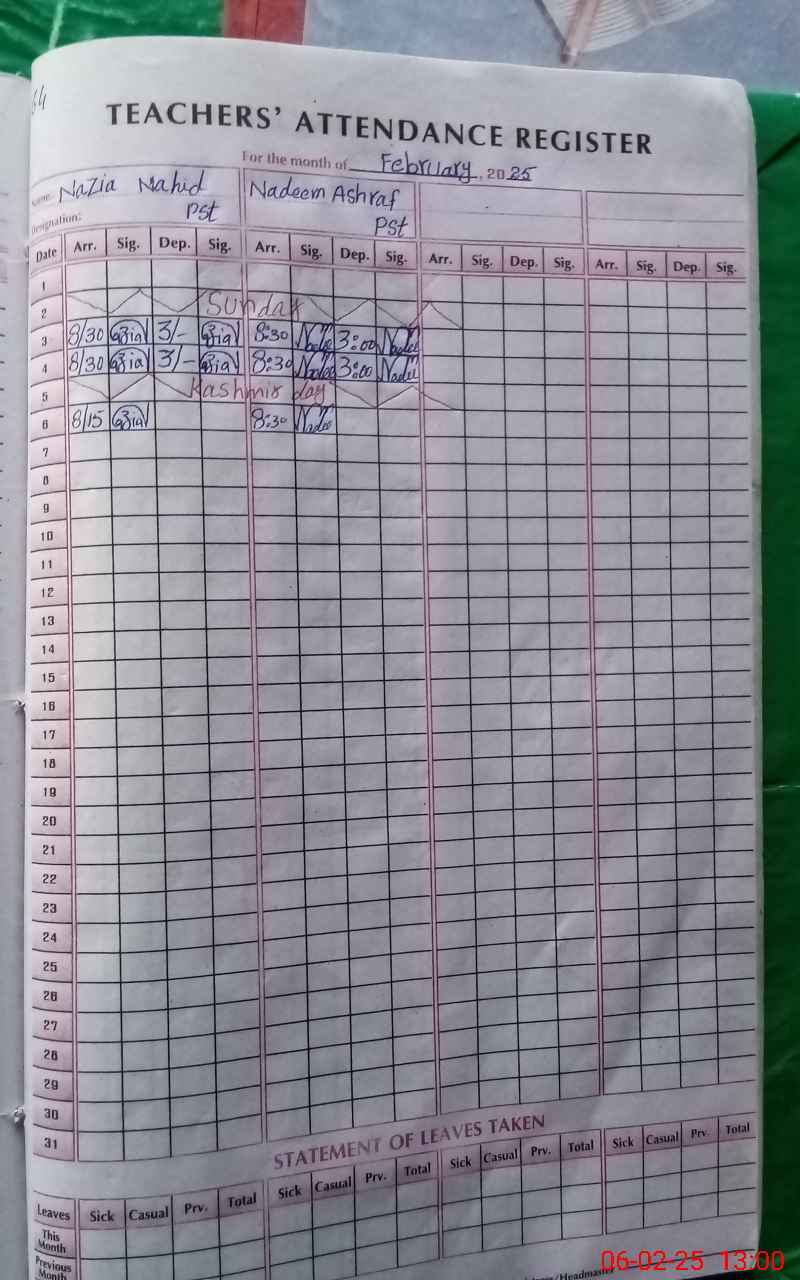 TEACHERS' ATTENDANCE REGISTER
For the month of February, 2025
Name: Nazia Nahid Nadeem Ashraf
Designation: Pst Pst
Date Arr. Sig. Dep. Sig. Arr. Sig. Dep. Sig. Arr. Sig. Dep. Sig. Arr. Sig. Dep. Sig.
1
2 Sunday
3 8/30 3/- 8:30 3:00
4 8/30 3/- 8:30 3:00
5 Kashmir day
6 8/15 8:30
7
8
9
10
11
12
13
14
15
16
17
18
19
20
21
22
23
24
25
26
27
28
29
30
31
STATEMENT OF LEAVES TAKEN
Leaves Sick Casual Prv. Total Sick Casual Prv. Total Sick Casual Prv. Total Sick Casual Prv. Total
This Month
Previous Month
/Headmaster
06-02-25 13:00